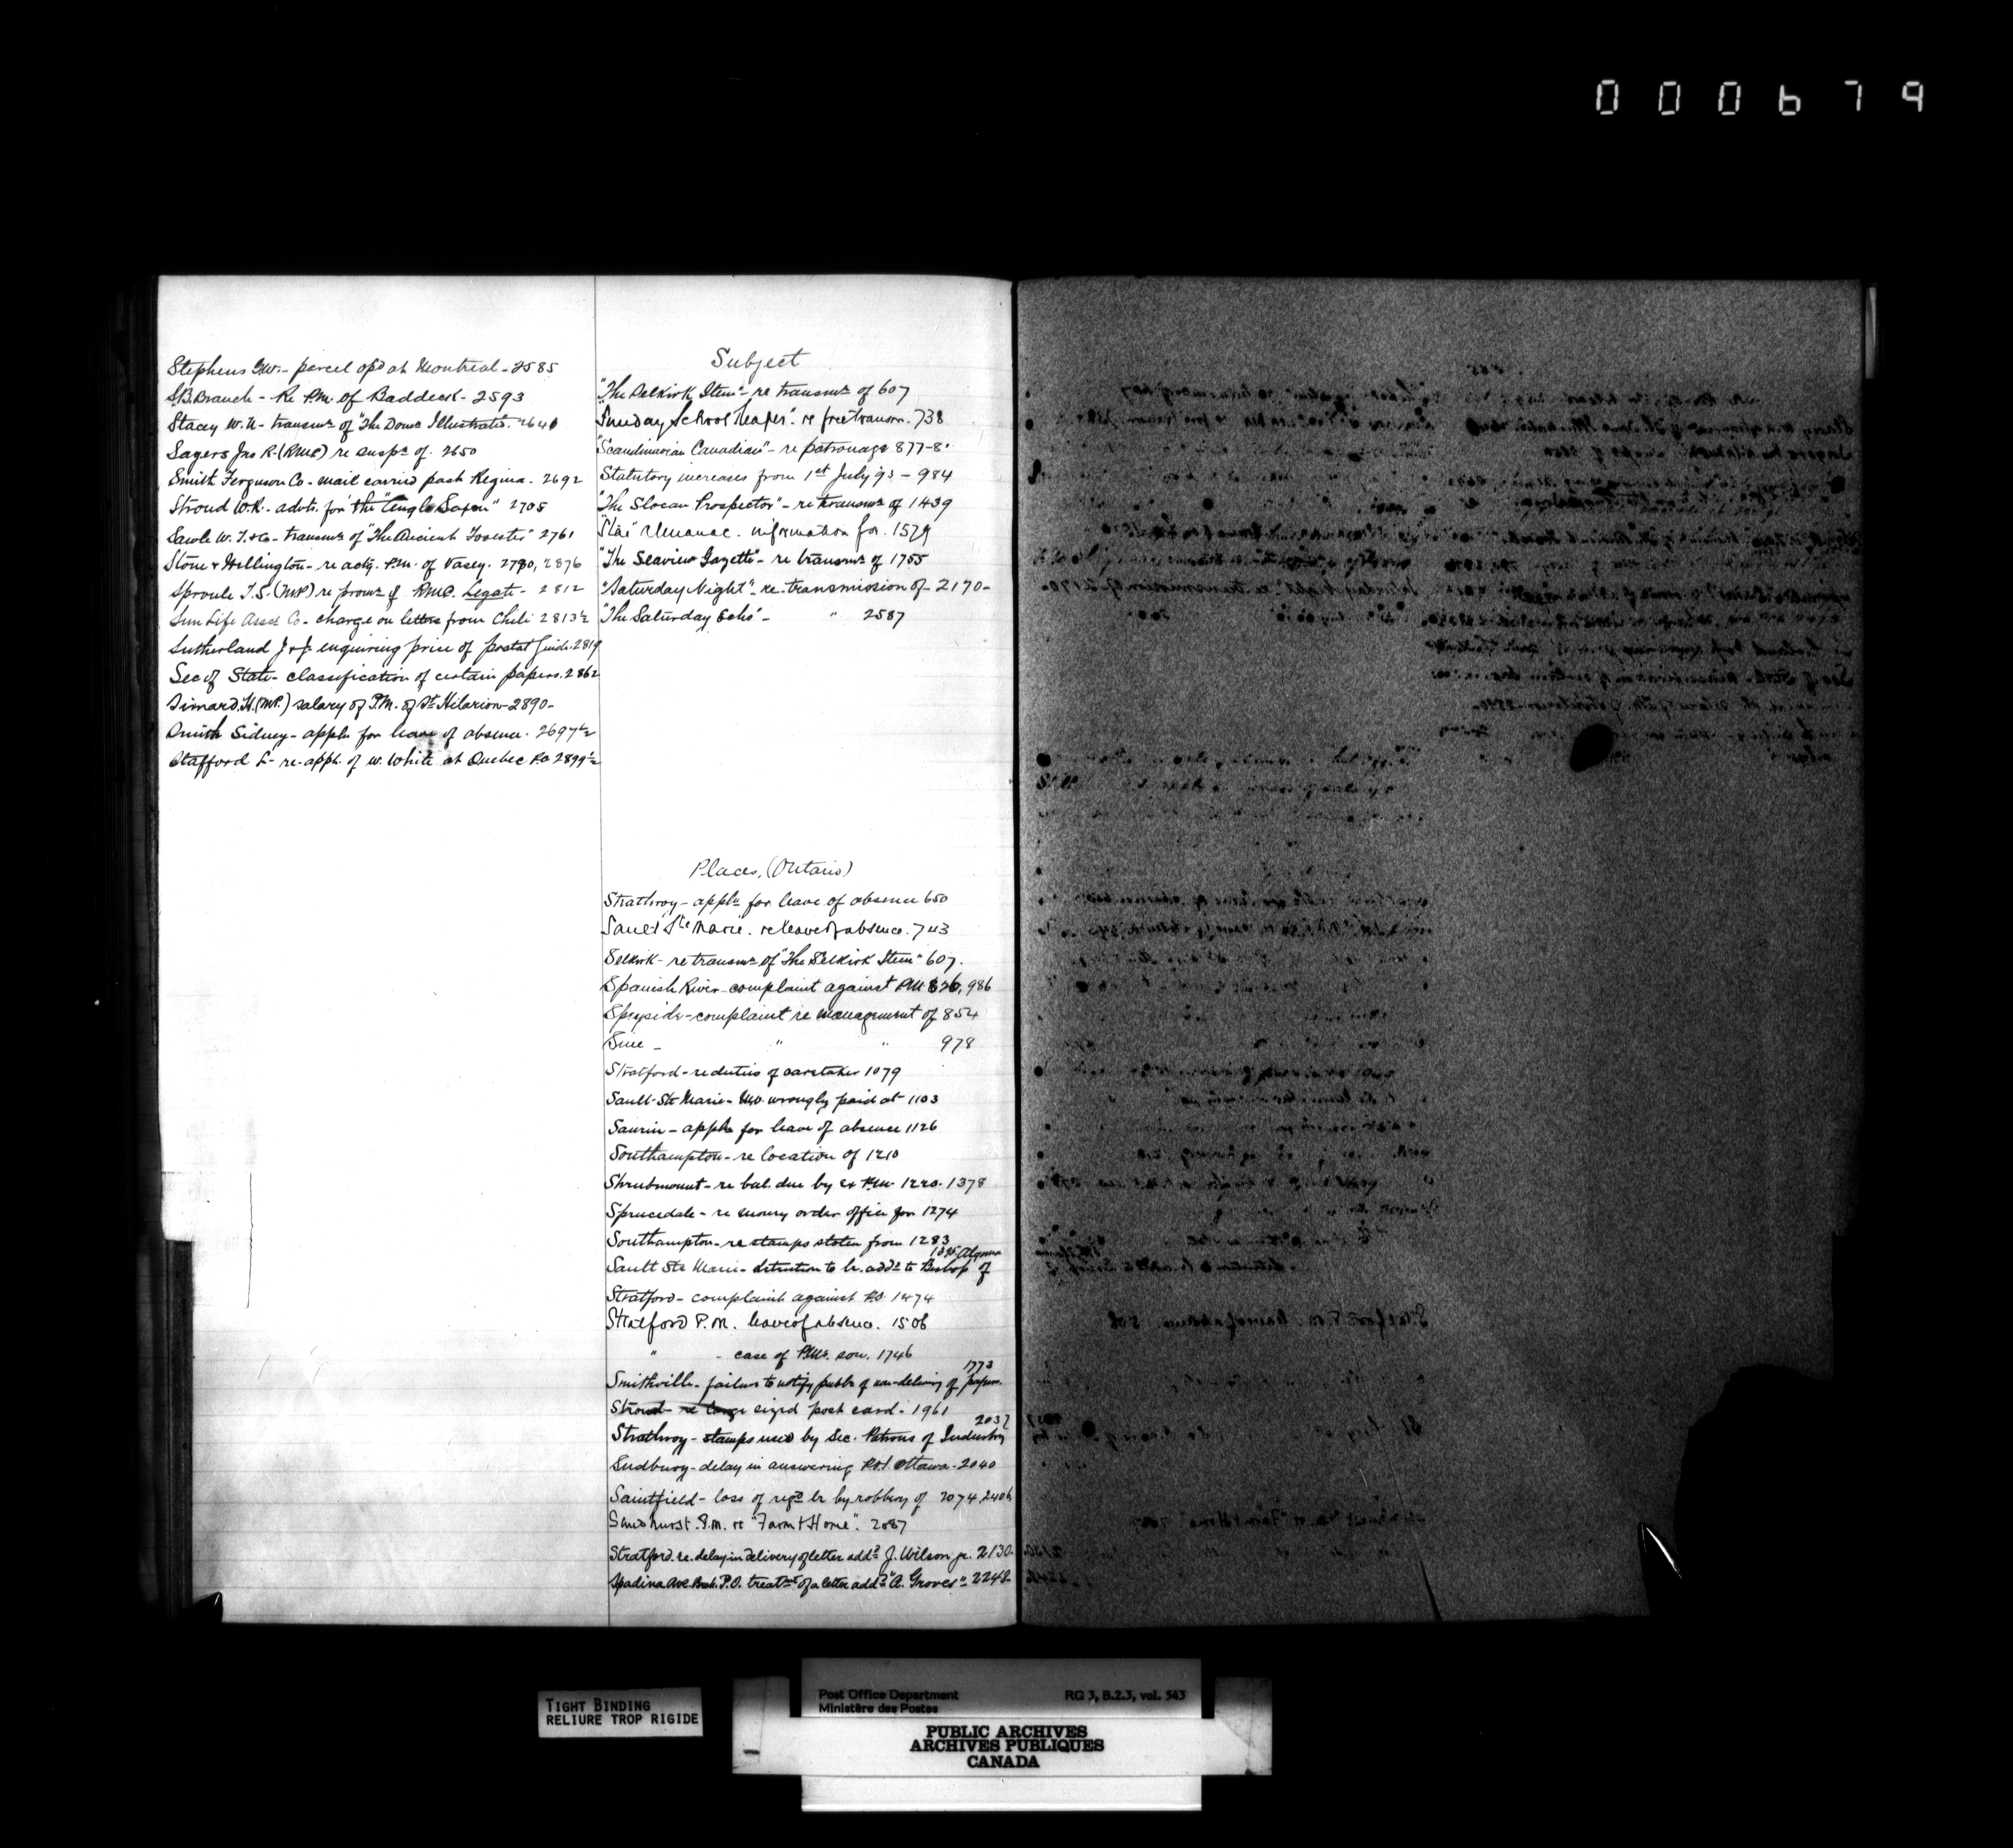 000679
Stephens G.W. - parcel opd at Montreal - 2585
S.B. Branch - Re P.M. of Baddeck - 2593
Stacey W. H - transmn of "The Domn Illustrated. 2640
Sayers Jas R. (RMC) re suspn of. 2650
Smith Ferguson Co - mail carried past Regina. 2692
Stroud W.R. - advt. for "the Anglo Saxon" 2705
Sawle W. T. & Co - transmn of "The Ancient Forester" 2761
Stone & Wellington - re actg. P.M. of Vasey. 2780, 2876
Sproule T.S. (MP) re promn of RMC. Legate - 2812
Sun Life Assce Co - charge on letters from Chili 2813½
Sutherland J & J. enquiring price of postal Guide. 2819
Sec of State - classification of certain papers. 2862
Simard H. (MP.) salary of P.M. of St Hilarion - 2890 -
Smith Sidney - appln for leave of absence. 2697½
Stafford L - re appt. of W. White at Quebec P.O. 2899½
Subject
"The Selkirk Item" - re transmn of 607
"Sunday School Leaper". re free transm. 738
"Scandinavian Canadian" - re patronage 877-8.
Statutory increases from 1st July 93 - 984
"The Slocan Prospector" - re transmn of 1439
"Star" Almanac. information for. 1579
"The Seaview Gazette" - re transmn of 1755
"Saturday Night" - re - transmission of - 2170 -
"The Saturday Echo" - " 2587
Places, (Ontario)
Strathroy - appln for leave of absence 650
Sault Ste Marie. re leave of absence. 743
Selkirk - re transmn of "The Selkirk Item" 607.
Spanish River - complaint against P.M. 826, 986
Speyside - complaint re management of 854
" " 978
Stratford - re duties of caretaker 1079
Sault Ste Marie - M.O. wrongly paid at 1103
Saurin - appln for leave of absence 1126
Southampton - re location of 1210
Shrubmount - re bal. due by ex P.M. 1220. 1378
Sprucedale - re money order office for 1274
Southampton - re stamps stolen from 1283
Sault Ste Marie - detention to lr. addd to Bishop of Algoma
Stratford - complaint against P.O. 1474
Stratford P.M. leave of absence. 1506
" - case of P.M's. son. 1746
Smithville - failure to notify publr of non-delivery of papers. 1773
Stroud - re large sized post card - 1961
Strathroy - stamps used by Sec. Patrons of Industry 2037
Sudbury - delay in answering P.O.I. Ottawa - 2040
Saintfield - loss of regd lr by robbery of 2074, 2406
P.M. re "Farm & Home". 2087
Stratford. re. delay in delivery of letter addd J. Wilson jr. 2130.
Spadina Ave. Bch. P.O. treatmt of a letter addd "A. Groves" - 2242
TIGHT BINDING
RELIURE TROP RIGIDE
Post Office Department RG 3, B.2.3, vol. 543
Ministère des Postes
PUBLIC ARCHIVES
ARCHIVES PUBLIQUES
CANADA